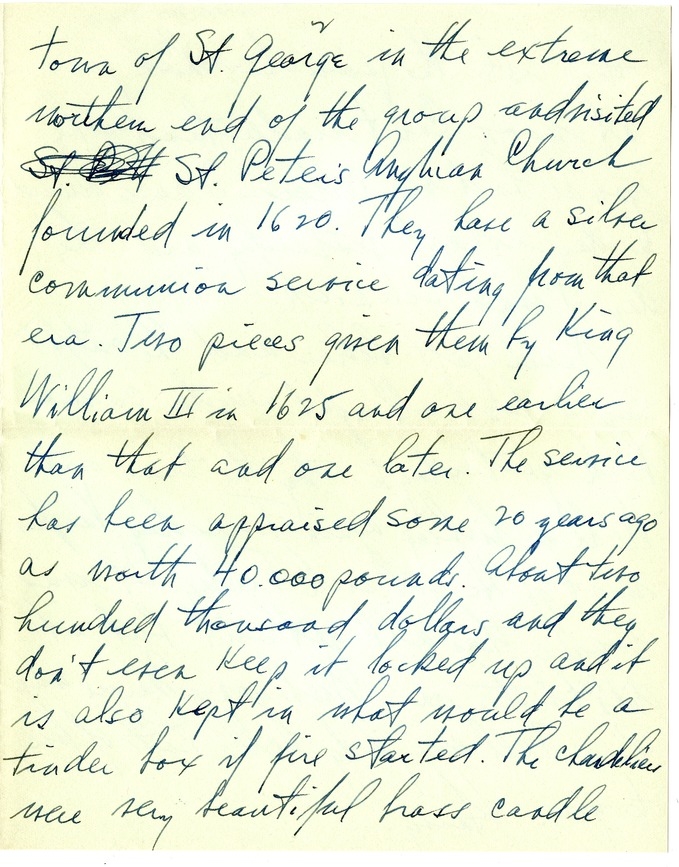 town of St. George in the extreme
northern end of the group and visited
St. St. Peter's Anglican Church
founded in 1620. They have a silver
communion service dating from that
era. Two pieces given them by King
William III in 1625 and one earlier
than that and one later. The service
has been appraised some 20 years ago
as worth 40.000 pounds. About two
hundred thousand dollars and they
don't even keep it locked up and it
is also kept in what would be a
tinder box if fire started. The chandeliers
were very beautiful brass candle